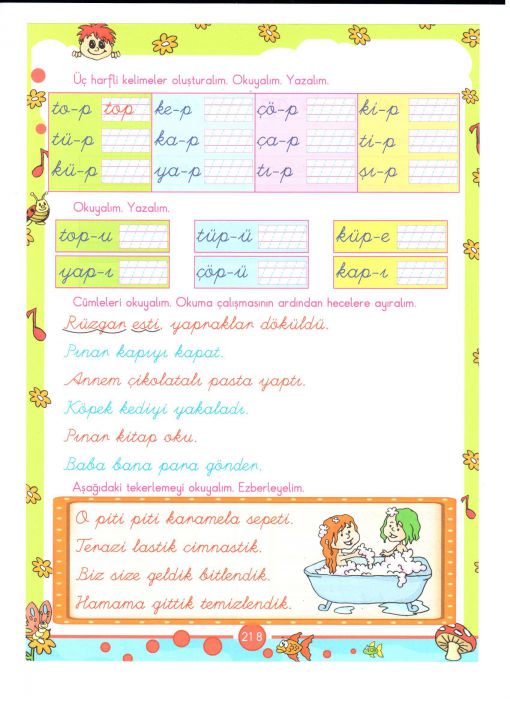 Üç harfli kelimeler oluşturalım. Okuyalım. Yazalım.
to-p top ke-p çö-p ki-p
tü-p ka-p ça-p ti-p
kü-p ya-p tı-p sı-p
Okuyalım. Yazalım.
top-u tüp-ü küp-e
yap-ı çöp-ü kap-ı
Cümleleri okuyalım. Okuma çalışmasının ardından hecelere ayıralım.
Rüzgar esti, yapraklar döküldü.
Pınar kapıyı kapat.
Annem çikolatalı pasta yaptı.
Köpek kediyi yakaladı.
Pınar kitap oku.
Baba bana para gönder.
Aşağıdaki tekerlemeyi okuyalım. Ezberleyelim.
O piti piti karamela sepeti.
Terazi lastik cimnastik.
Biz size geldik bitlendik.
Hamama gittik temizlendik.
218